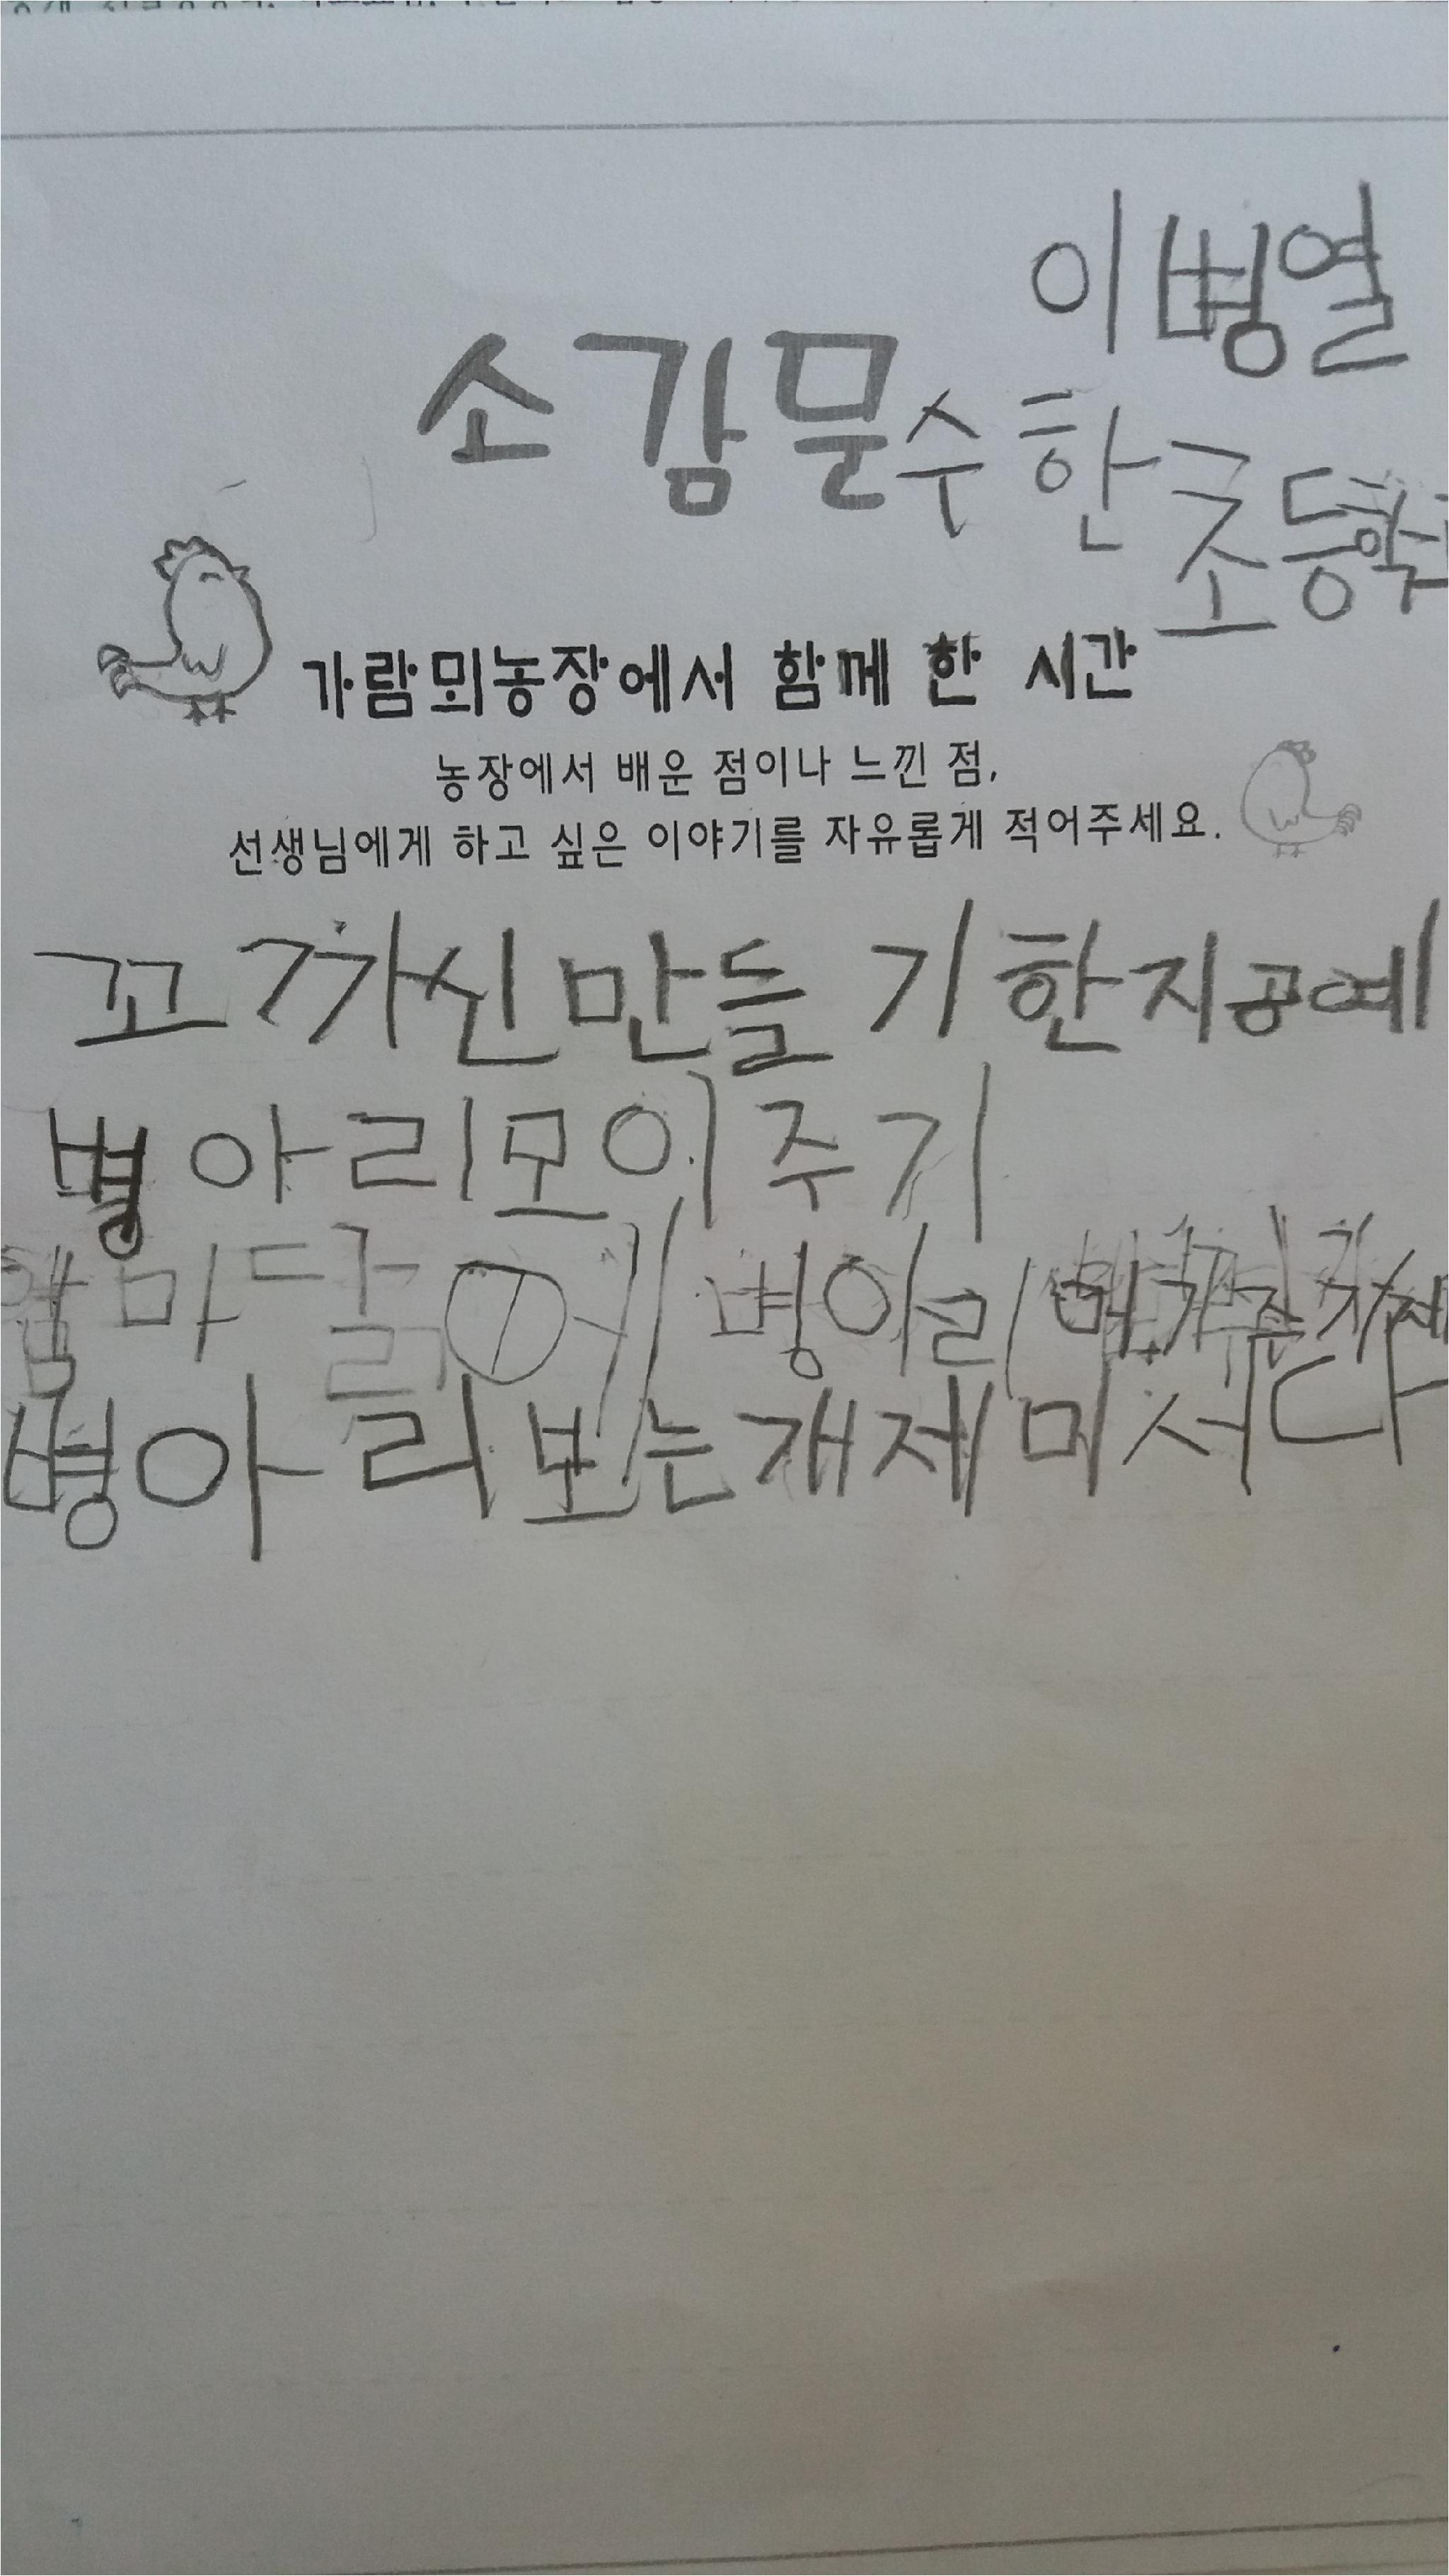 이병열
소감문 수한초등학
가람뫼농장에서 함께 한 시간
농장에서 배운 점이나 느낀 점,
선생님에게 하고 싶은 이야기를 자유롭게 적어주세요.
꼬까신만들기한지공예
병아리모이주기
병아리
병아리보는개제미서다